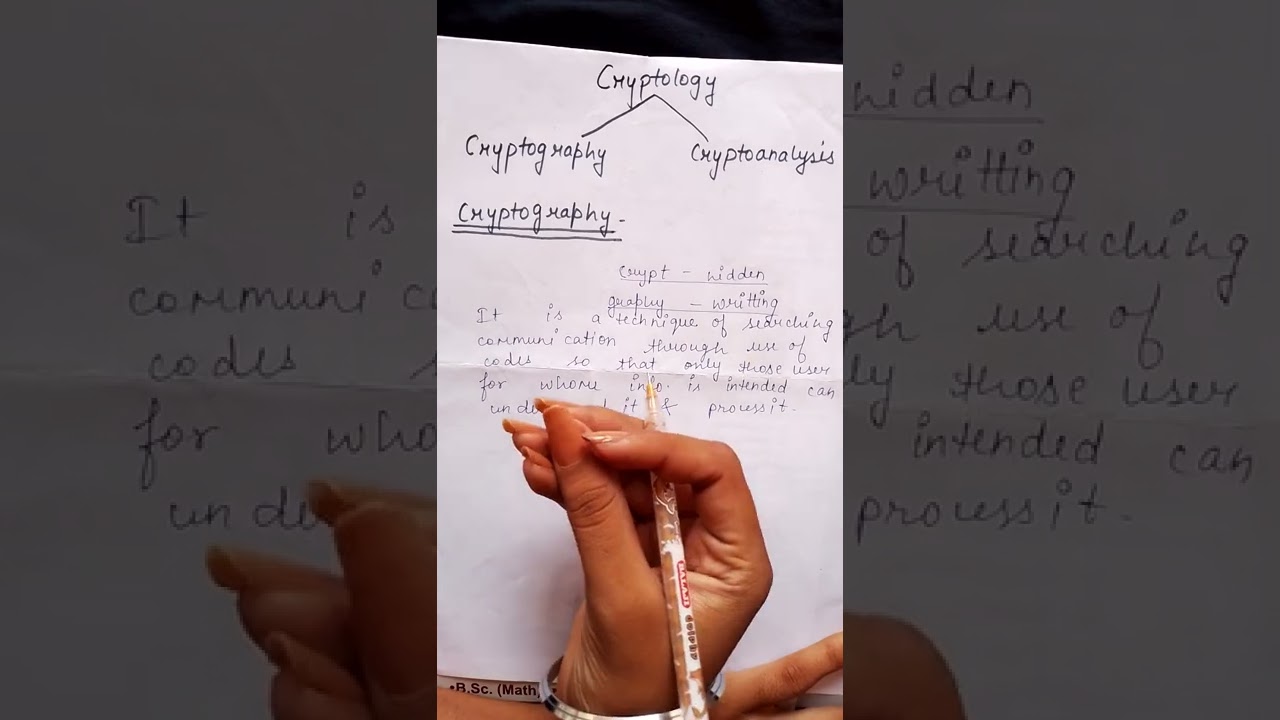 Cryptology
Cryptography Cryptoanalysis
Cryptography -
Crypt - hidden
graphy - writting
It is a technique of searching
communication through use of
codes so that only those user
for whome info. is intended can
it & process it.
B.Sc. (Math,